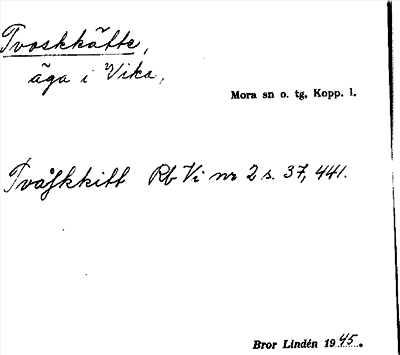 Tvaskkätte,
äga i Vika,
Mora sn o. tg, Kopp. l.
Tvåskkitt Rb Vi nr 2 s. 37, 441.
Bror Lindén 1945.